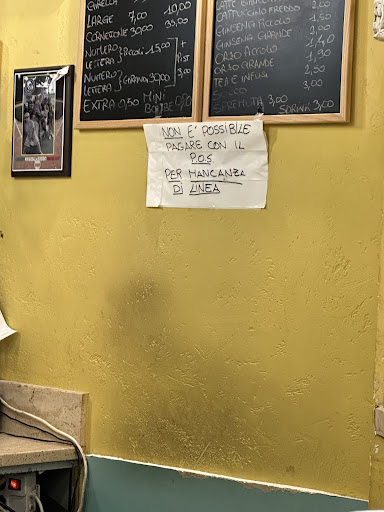 GARELLA 10,00
LARGE 7,00
CORNETIONE 30,00 35,00
NUMERO
LETTERA PICCOLI 15,00 +
NUMERO PIST
LETTERA GRANDI 30,00 3,00
EXTRA 0,50 MINI
BOMBE 0,80
CAPPUCCINO FREDDO 2,00
GINSENG PICCOLO 1,50
GINSENG GRANDE 2,00
ORZO PICCOLO 1,40
ORZO GRANDE 1,90
TEA E INFUSI 2,50
SUCCO 3,00
SPREMUTA 3,00 SPRITZ 3,00
NON E' POSSIBILE
PAGARE CON IL
P.O.S
PER MANCANZA
DI LINEA